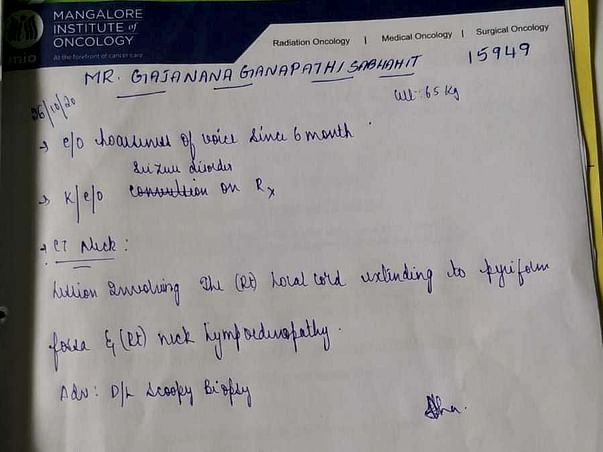 MANGALORE
INSTITUTE of
ONCOLOGY
mio
At the forefront of cancer care
Radiation Oncology | Medical Oncology | Surgical Oncology
MR. GAJANANA GANAPATHI SABHAHIT 15949
26/10/20
Wt: 65 Kg
→ c/o hoarseness of voice since 6 month
Seizure disorder
→ K/c/o convultion on Rx
→ CT Neck:
Lession Involving The (Rt) Vocal cord extending to pyriform
fossa & (Rt) neck Lymphedenopathy.
Adv: D/L Scoopy Biopsy